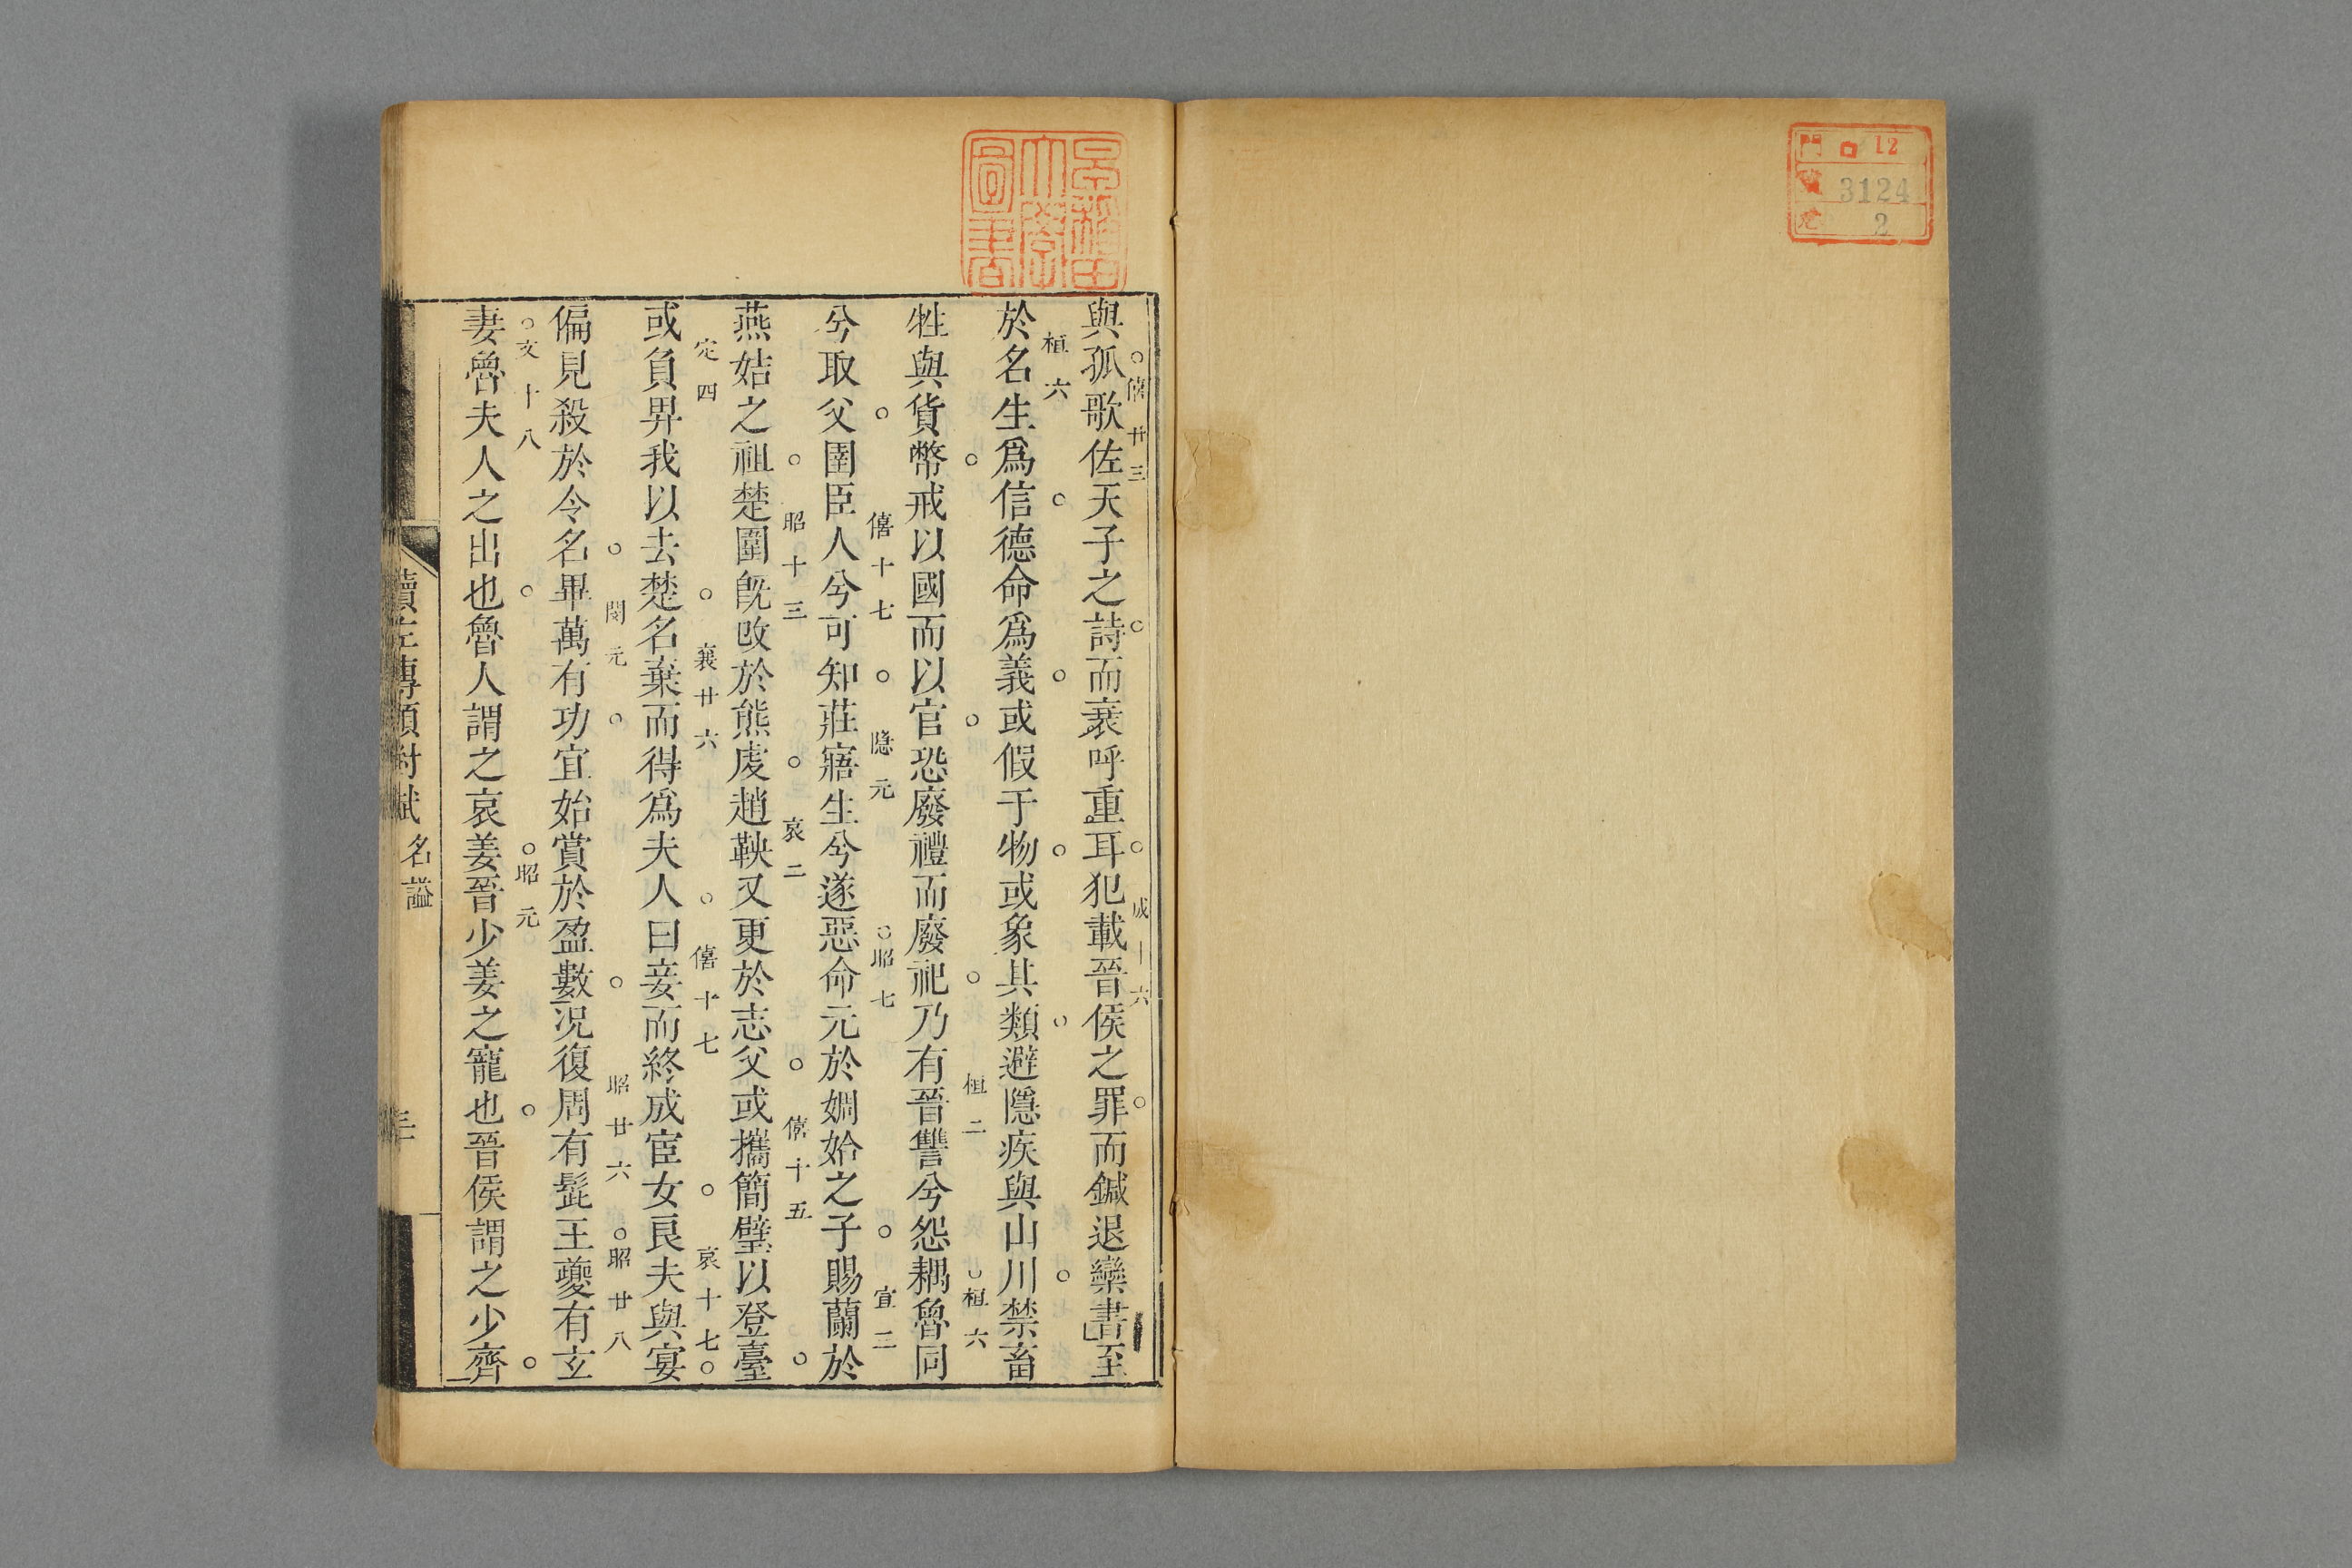 門 ロ 12
號 3124
卷 2
早稲田
大學
圖書
與孤歌佐天子之詩而衰呼重耳犯載晉侯之罪而鍼退欒書至
僖廿三 成十六
於名生爲信德命爲義或假于物或象其類避隱疾與山川禁畜
桓六
牲與貨幣戒以國而以官恐廢禮而廢祀乃有晉讐兮怨耦魯同
桓二 桓六
兮取父圉臣人兮可知莊寤生兮遂惡命元於婤姶之子賜蘭於
僖十七 隱元 昭七 宣三
燕姞之祖楚圍旣改於熊虔趙鞅又更於志父或攜簡璧以登臺
昭十三 哀二 僖十五
或負畀我以去楚名棄而得爲夫人曰妾而終成宦女良夫與宴
定四 襄廿六 僖十七 哀十七
偏見殺於令名畢萬有功宜始賞於盈數況復周有髭王夔有玄
閔元 昭廿六 昭廿八
妻魯夫人之出也魯人謂之哀姜晉少姜之寵也晉侯謂之少齊
文十八 昭元
讀左傳類對賦 名謚 三